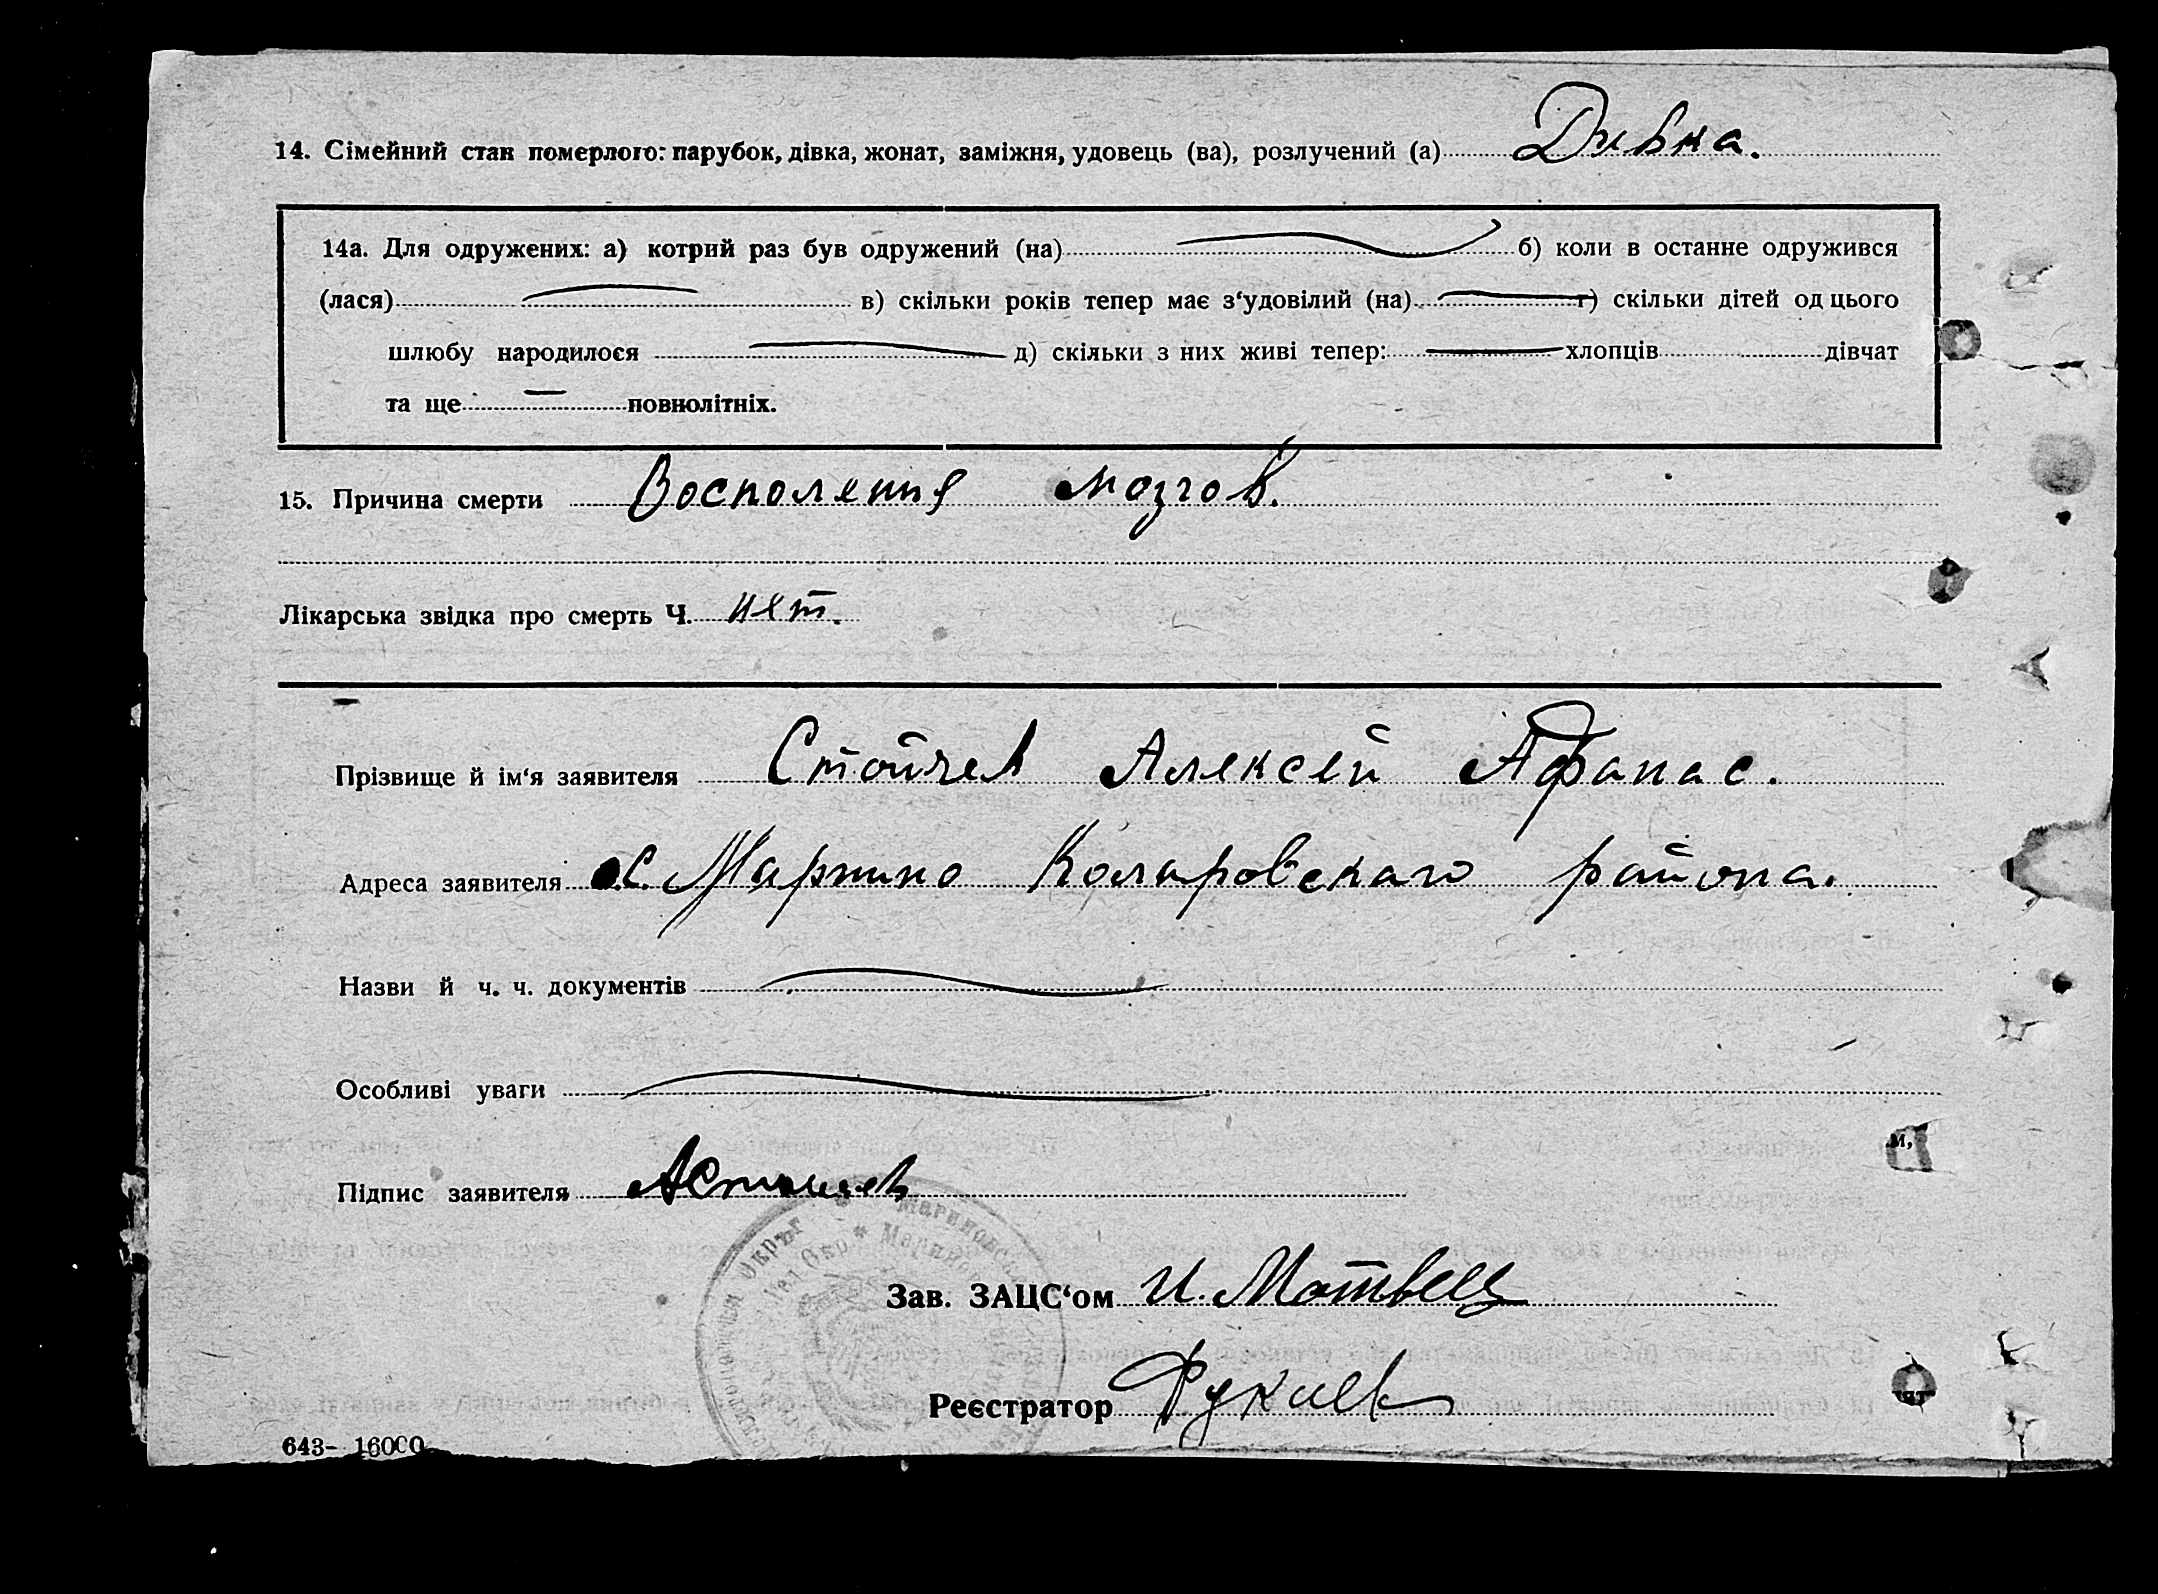 14. Сімейний стан померлого: парубок, дівка, жонат, заміжня, удовець (ва), розлучений (а) Дивка.
14а. Для одружених: а) котрий раз був одружений (на) б) коли в останне одружився
(лася) в) скільки років тепер має з‘удовілий (на) г) скільки дітей од цього
шлюбу народилося д) скільки з них живі тепер: хлопців дівчат
та ще повнолітніх.
15. Причина смерти Восполения мозгов.
Лікарська звідка про смерть Ч. нет.
Прізвище й ім‘я заявителя Стойчев Алексей Афанас.
Адреса заявителя с. Марино Коларовскаго района.
Назви й ч. ч. документів
Особливі уваги
м,
Підпис заявителя
Зав. ЗАЦС‘ом И.
Реєстратор
643- 16000